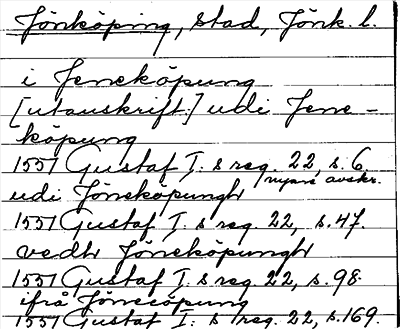 Jönköping, stad, Jönk. l.
i Jeneköpung
[utanskrift:] udi Jene-
köpung
1551 Gustaf I: s reg. 22, s. 6.
nyare avskr.
udi Jöneköpungh
1551 Gustaf I: s reg. 22, s. 47.
vedh Jöneköpungh
1551 Gustaf I: s reg. 22, s. 98.
ifrå Jöneköpung
1551 Gustaf I: s reg. 22, s. 169.